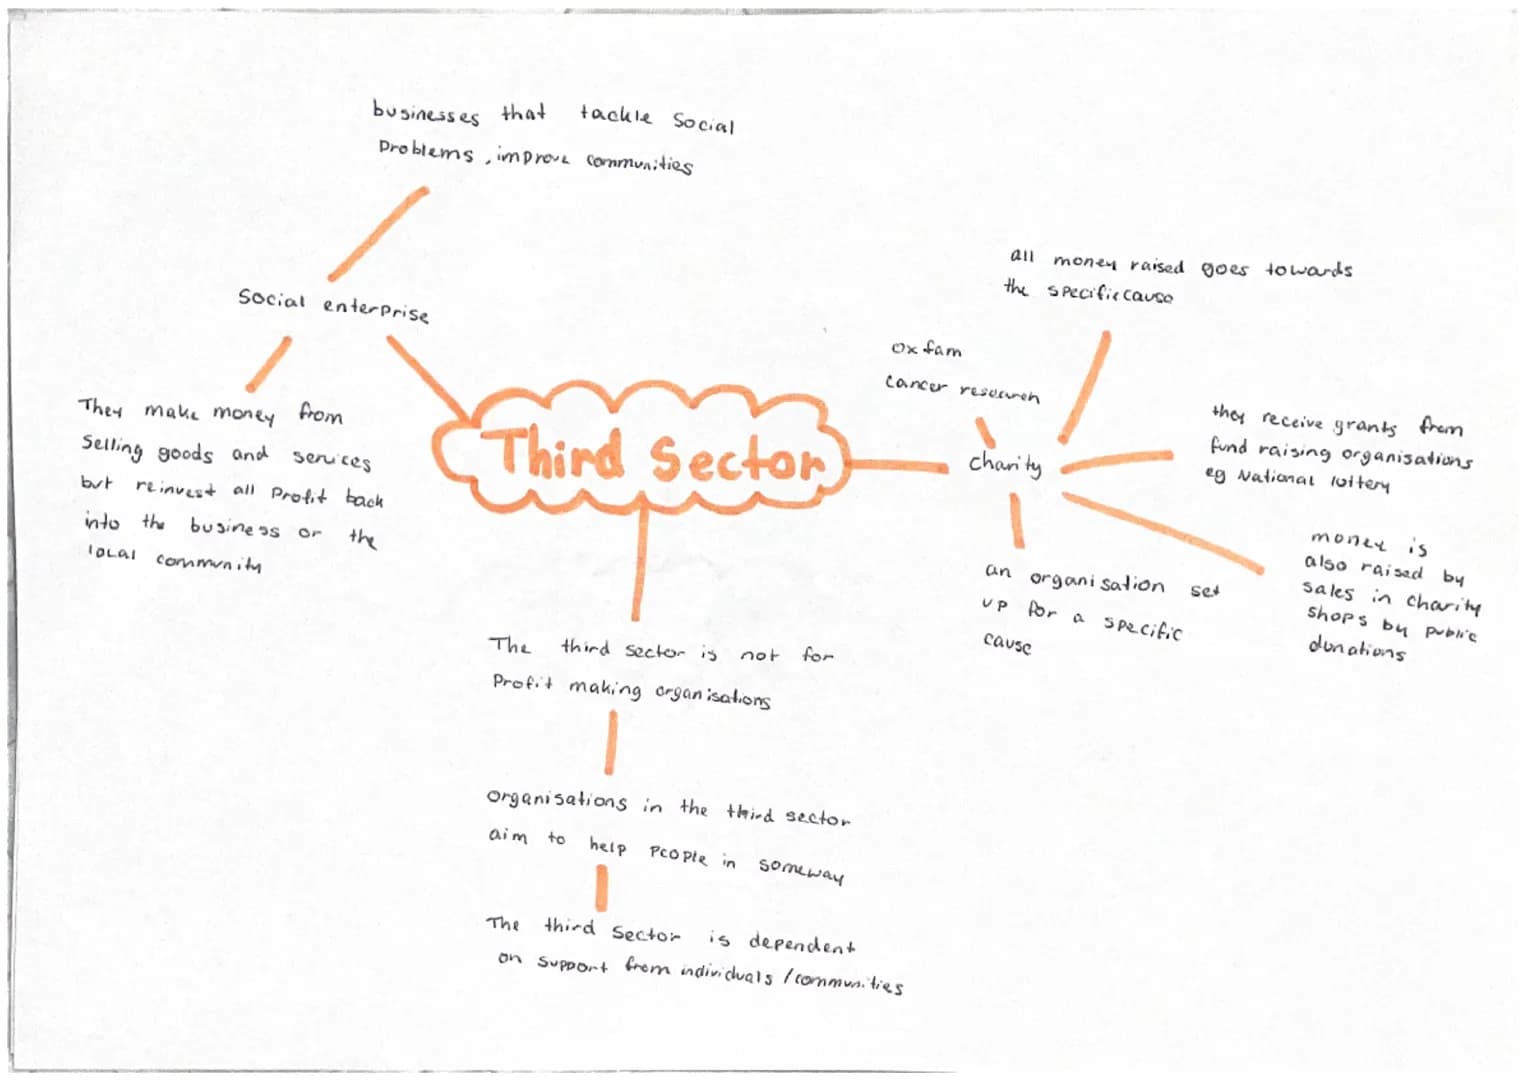 businesses that tackle social
problems, improve communities
Social enterprise
They make money from
selling goods and services
but reinvest all profit back
into the business or the
local community
Third Sector
all money raised goes towards
the specific cause
oxfam
cancer research
charity
they receive grants from
fund raising organisations
eg National lottery
money is
also raised by
sales in charity
shops by public
donations
an organisation set
up for a specific
cause
The third sector is not for
profit making organisations
organisations in the third sector
aim to help people in someway
The third sector is dependent
on support from individuals / communities